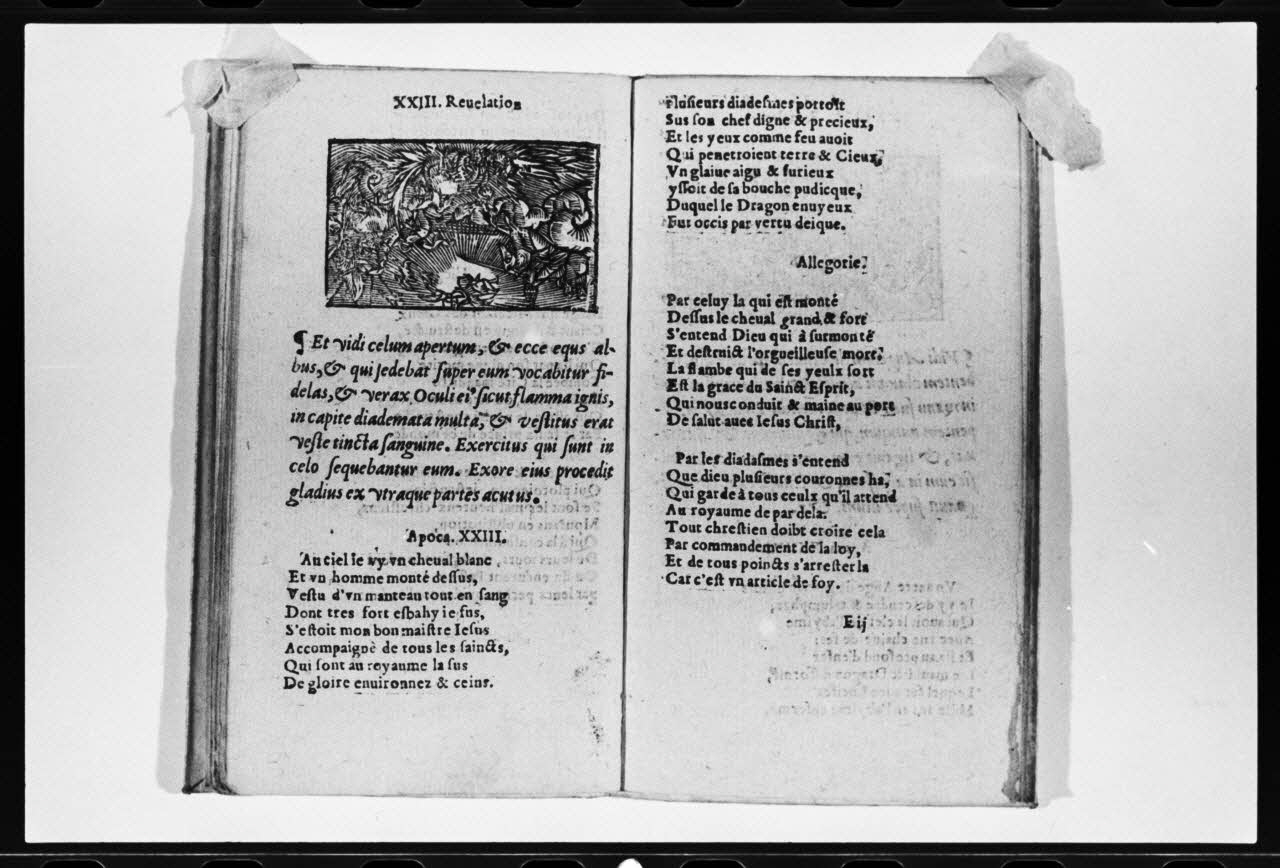 XXIII. Reuelation
¶ Et vidi celum apertum, & ecce equs al-
bus, & qui sedebat super eum vocabitur fi-
delas, & verax Oculi ei⁹ sicut flamma ignis,
in capite diademata multa, & vestitus erat
veste tincta sanguine. Exercitus qui sunt in
celo sequebantur eum. Exore eius procedit
gladius ex vtraque partes acutus.
Apoca. XXIII.
Au ciel ie vy vn cheual blanc
Et vn homme monté dessus,
Vestu d'vn manteau tout en sang
Dont tres fort esbahy ie fus,
S'estoit mon bon maistre Iesus
Accompaigné de tous les saincts,
Qui sont au royaume la sus
De gloire enuironnez & ceins.
Plusieurs diadesmes portoit
Sus son chef digne & precieux,
Et les yeux comme feu auoit
Qui penetroient terre & Cieux,
Vn glaiue aigu & furieux
yssoit de sa bouche pudicque,
Duquel le Dragon enuyeux
Fut occis par vertu deique.
Allegorie.
Par celuy la qui est monté
Dessus le cheual grand & fort
S'entend Dieu qui à surmonté
Et destruict l'orgueilleuse mort.
La flambe qui de ses yeulx sort
Est la grace du Sainct Esprit,
Qui nous conduit & maine au port
De salut auec Iesus Christ,
Par les diadasmes s'entend
Que dieu plusieurs couronnes ha,
Qui garde à tous ceulx qu'il attend
Au royaume de par dela.
Tout chrestien doibt croire cela
Par commandement de la loy,
Et de tous poincts s'arrester la
Car c'est vn article de foy.
E ij